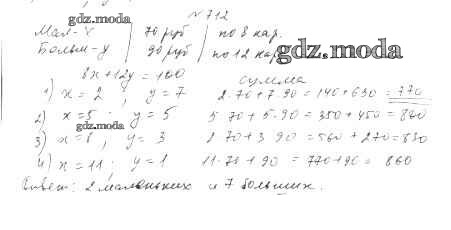 gdz.moda
№712
Мал-x | 70 руб | по 8 кар.
Больш-y | 90 руб | по 12 кар
gdz.moda
8x+12y=100
сумма
1) x=2, y=7 2·70+7·90=140+630=770
2) x=5; y=5 5·70+5·90=350+450=800
gdz.moda
3) x=8, y=3 8·70+3·90=560+270=830
4) x=11; y=1 11·70+90=770+90=860
Ответ: 2 маленьких и 7 больших.